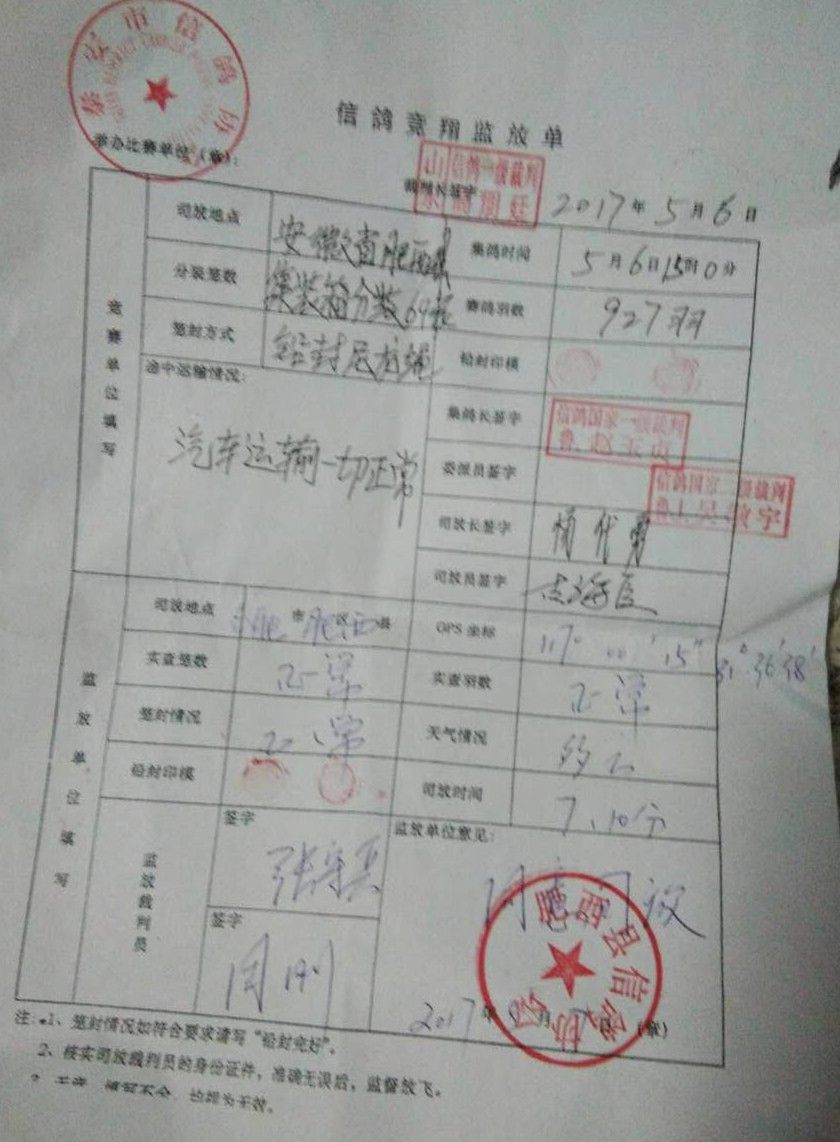 泰安市信鸽协
信鸽竞翔监放单
举办比赛单位(章):
裁判长签字
山 信鸽一级裁判
2017年5月6日
竞赛单位填写
司放地点 安徽省肥西县 集鸽时间 5月6日15时0分
分装笼数 集装箱分数69笼 赛鸽羽数 927羽
笼封方式 铅封尼龙绳 铅封印模
途中运输情况:
汽车运输一切正常
集鸽长签字 信鸽国家一级裁判
鲁 赵玉贞
委派员签字 信鸽国家一级裁判
司放长签字
司放员签字
监放单位填写
司放地点 合肥市肥西区县 GPS坐标 117° 00' 15" 31° 36' 38'
实查笼数 正常 实查羽数 正常
笼封情况 正常 天气情况 多云
铅封印模 司放时间 7、10分
监放裁判员
签字
签字
周刚
监放单位意见:
同意开放
肥西县信鸽协
2017年 月 日(章)
注:1、笼封情况如符合要求请写“铅封完好”。
2、核实司放裁判员的身份证件,准确无误后,监督放飞。